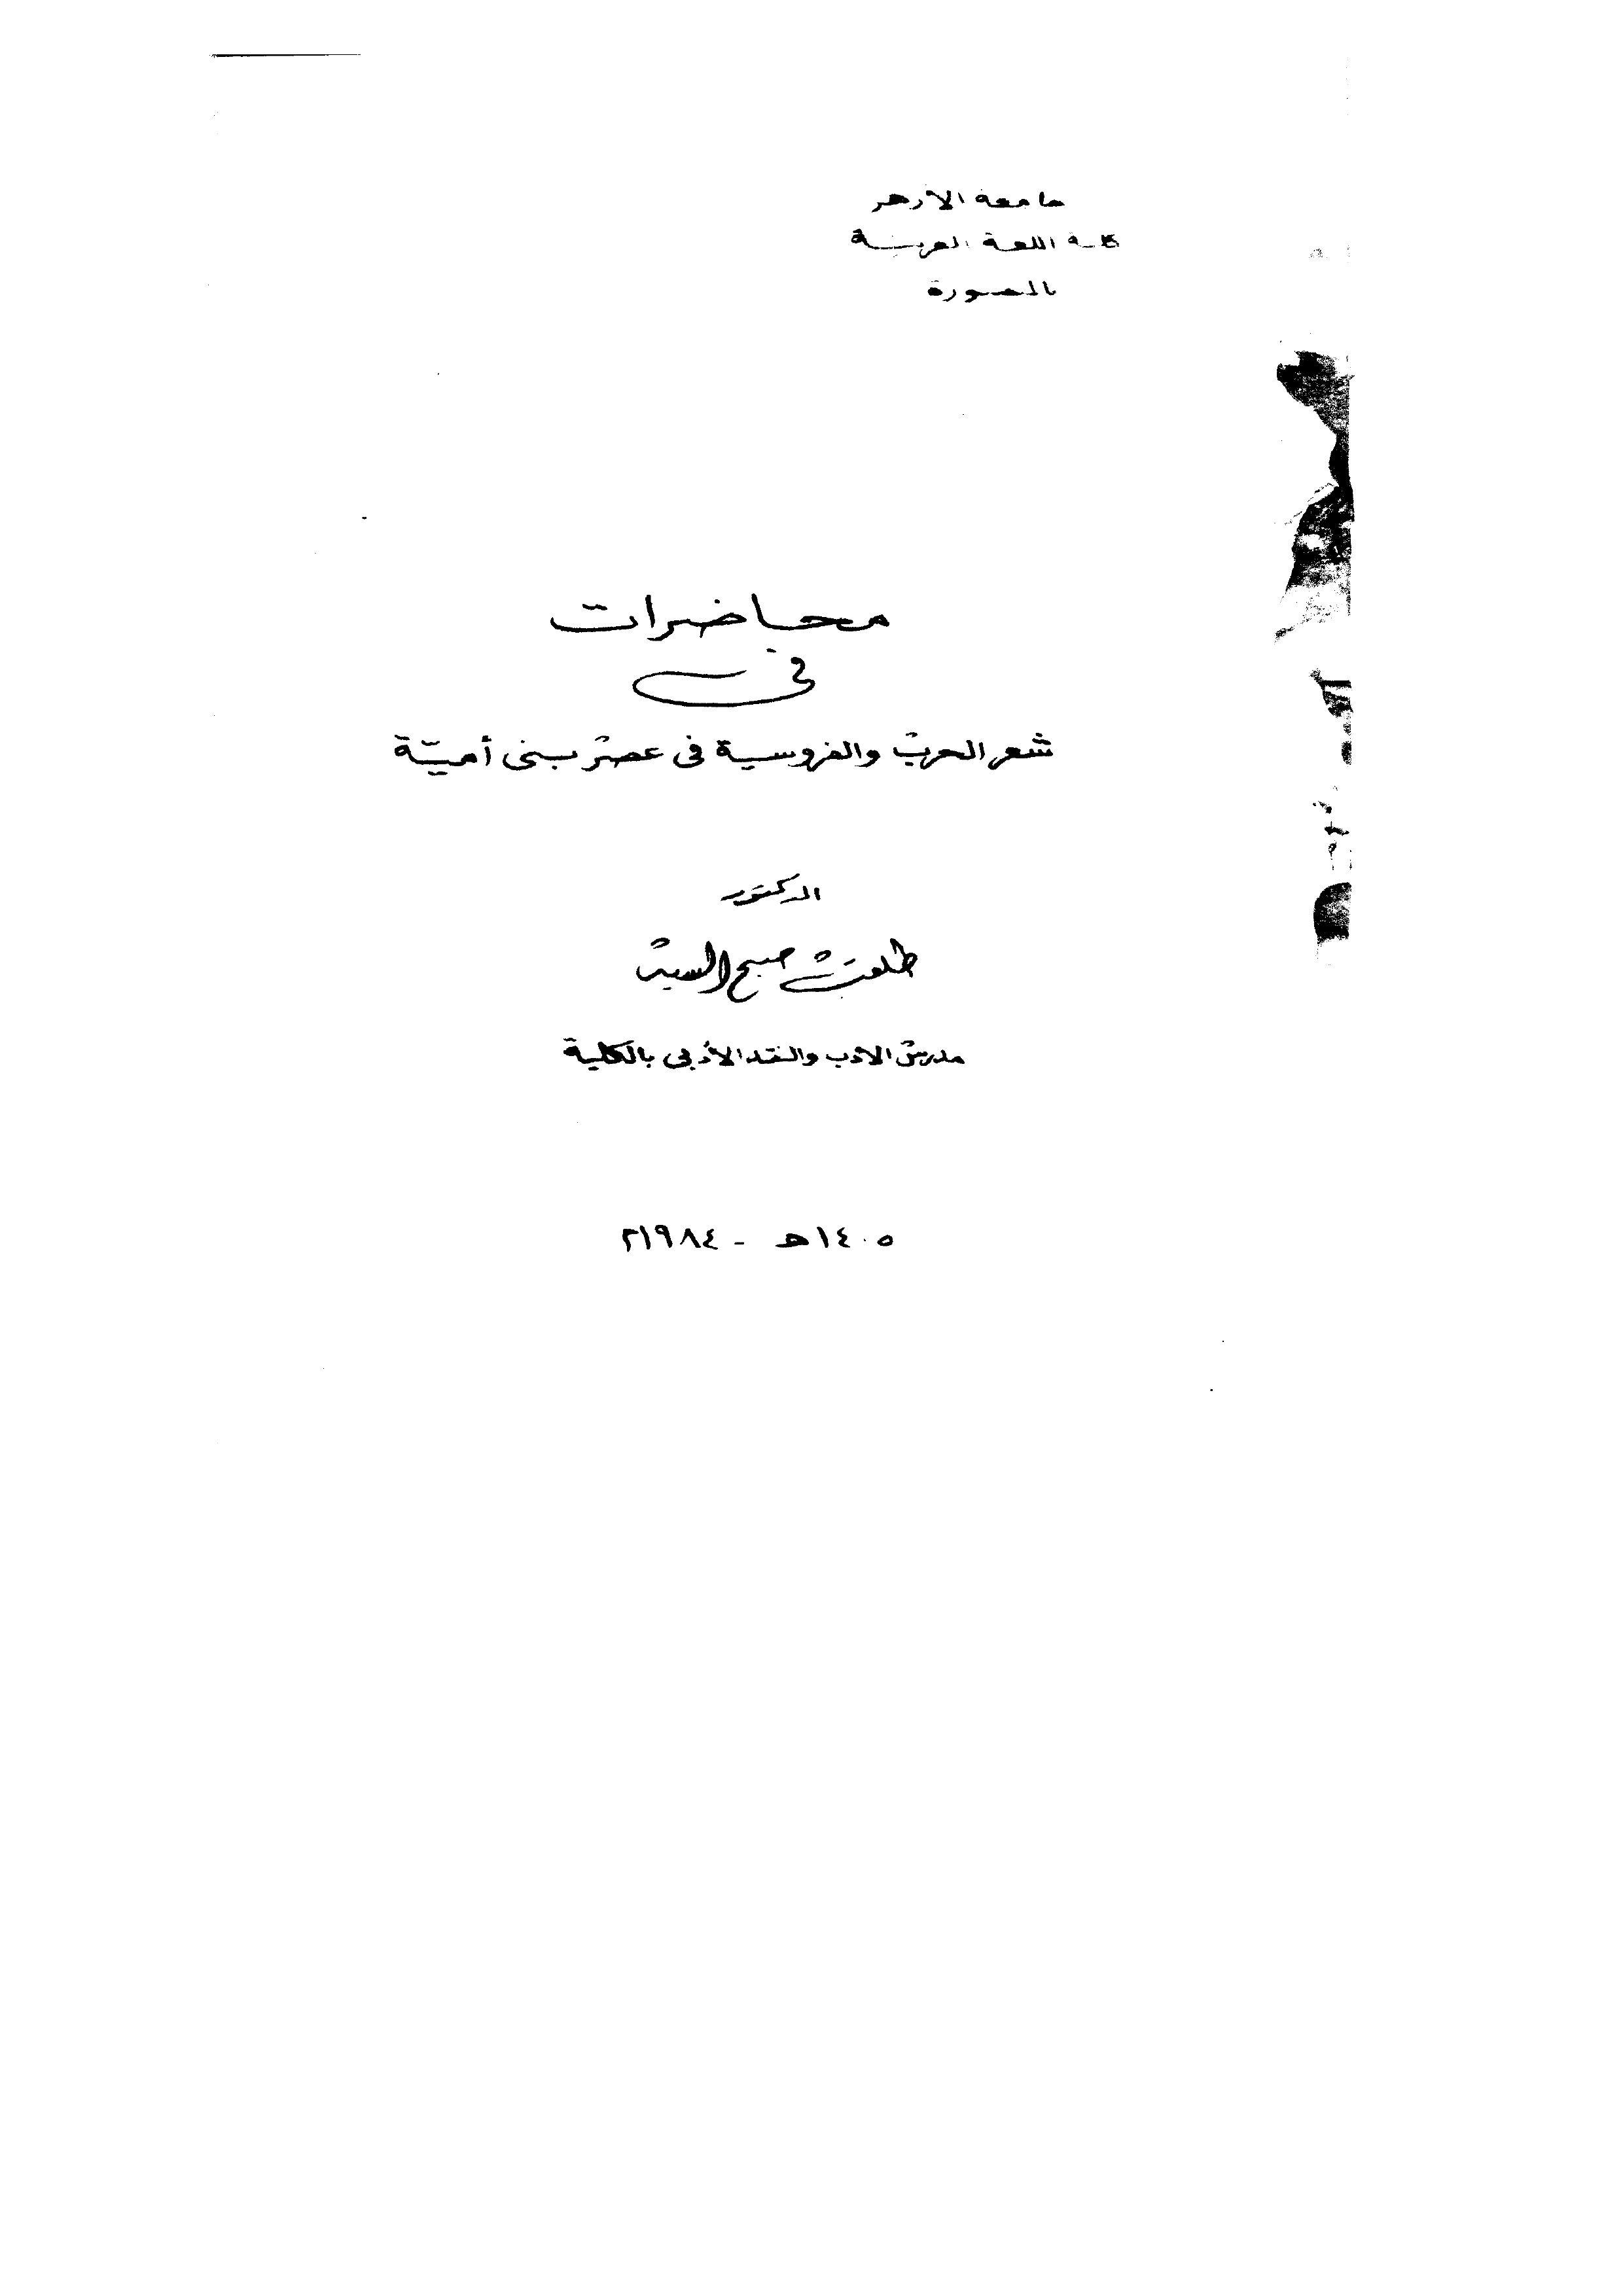 جامعة الأزهر
كلية اللغة العربية
بالمنصورة
محاضرات
فى
شعر الحرب والفروسية فى عصر بنى أميّة
الدكتور
طلعت صبح السيد
مدرس الأدب والنقد الأدبى بالكلية
١٤٠٥هـ - ١٩٨٤م